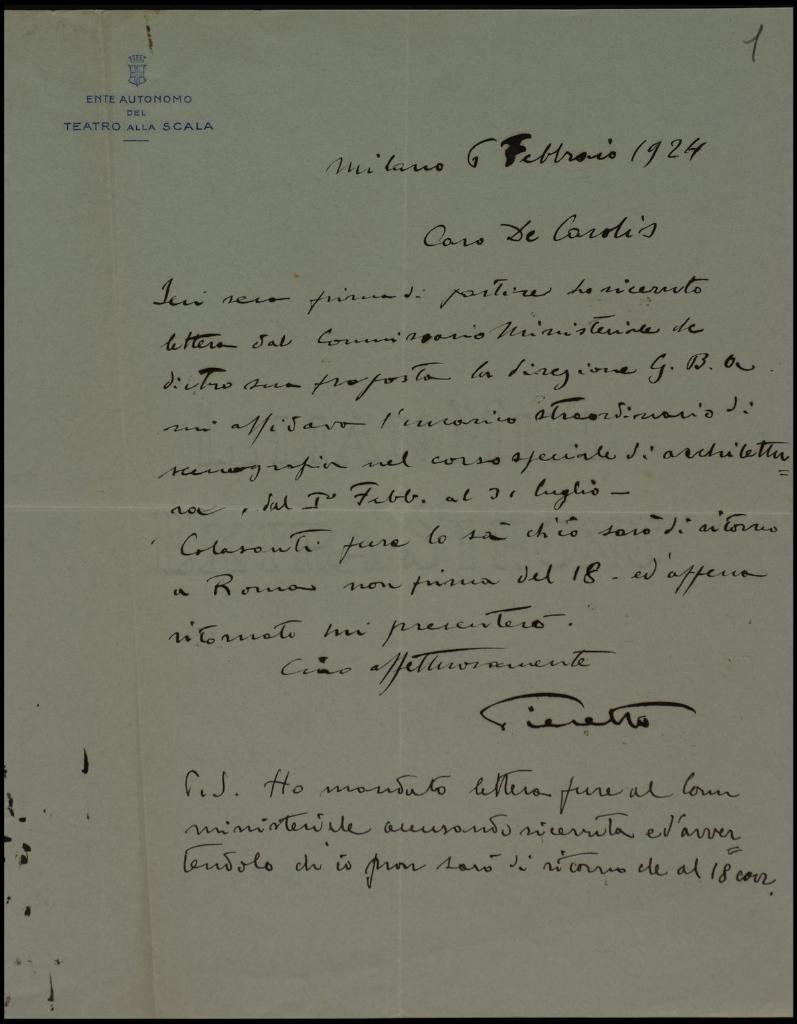 1
ENTE AUTONOMO
DEL
TEATRO ALLA SCALA
Milano 6 Febbraio 1924
Caro De Carolis
Ieri sera prima di partire ho ricevuto
lettera dal Commissario Ministeriale che
dietro sua proposta la direzione G. B. A.
mi affidava l'incarico straordinario di
scenografia nel corso speciale di architettu=
ra, dal I° Febb. al 31 luglio –
Colasanti pure lo sà ch'io sarò di ritorno
a Roma non prima del 18 - ed appena
ritornato mi presenterò.
Ciao affettuosamente
Pieretto
P.S. Ho mandato lettera pure al Comm
ministeriale accusando ricevuta ed avver=
tendolo ch'io non sarò di ritorno che al 18 corr.